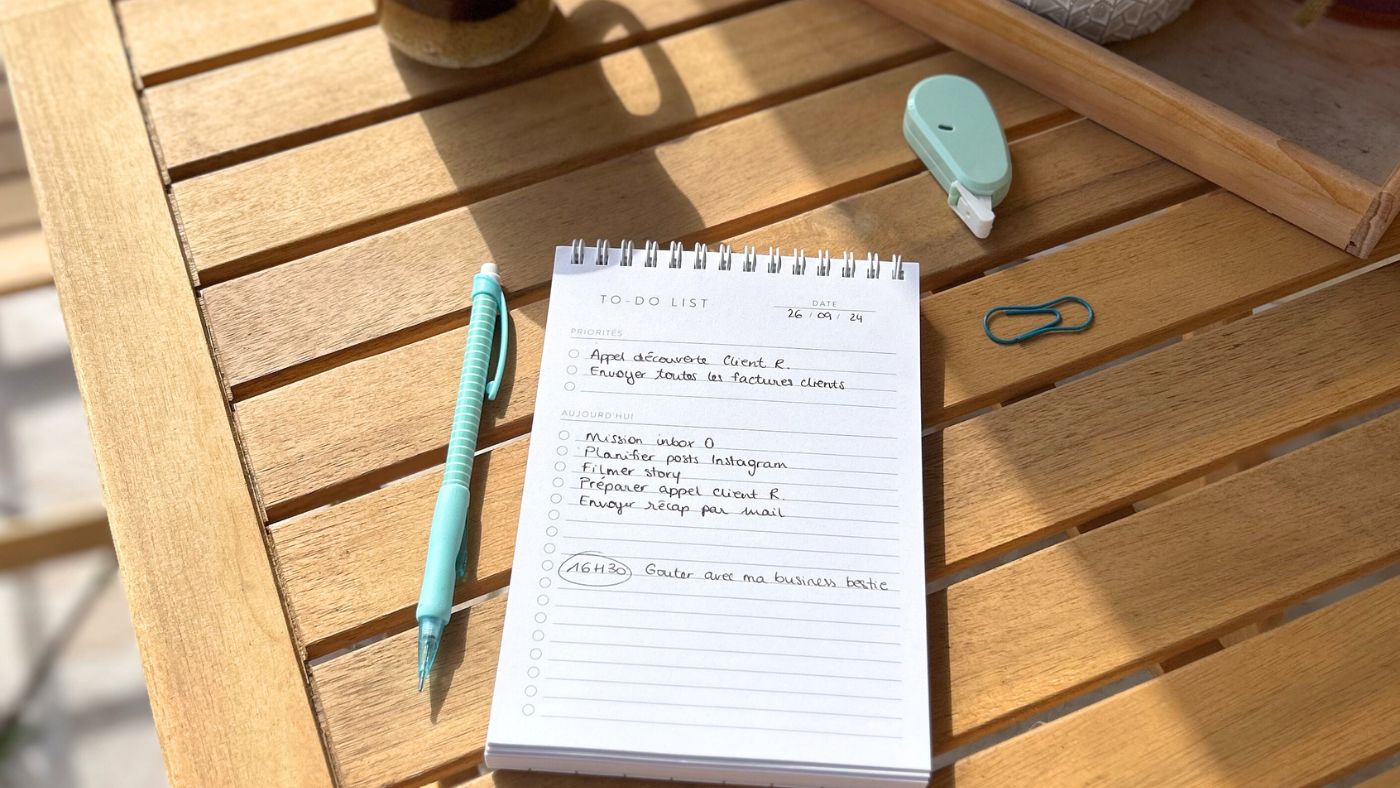 TO-DO LIST
DATE
26 / 09 / 24
PRIORITÉS
Appel découverte Client R.
Envoyer toutes les factures clients
AUJOURD'HUI
Mission inbox 0
Planifier posts Instagram
Filmer story
Préparer appel client R.
Envoyer récap par mail
16H30 Gouter avec ma business bestie